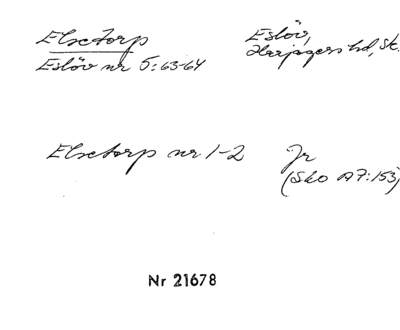 Elsetorp
Eslöv nr 5:63-64
Eslöv,
Harjagers hd, Sk.
Elsetorp nr 1-2
Jr
(Sko A7:153)
Nr 21678